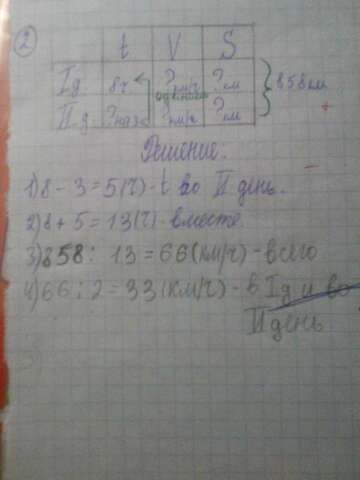 2
t V S
I д 8 ч ? км/ч ? км
одинак
II д ? на 3 < ? км/ч ? км
858 км
+
Решение:
1) 8 - 3 = 5 (ч) - t во II день.
2) 8 + 5 = 13 (ч) - вместе.
3) 858 : 13 = 66 (км/ч) - всего
4) 66 : 2 = 33 (км/ч) - в I д и во
II день.